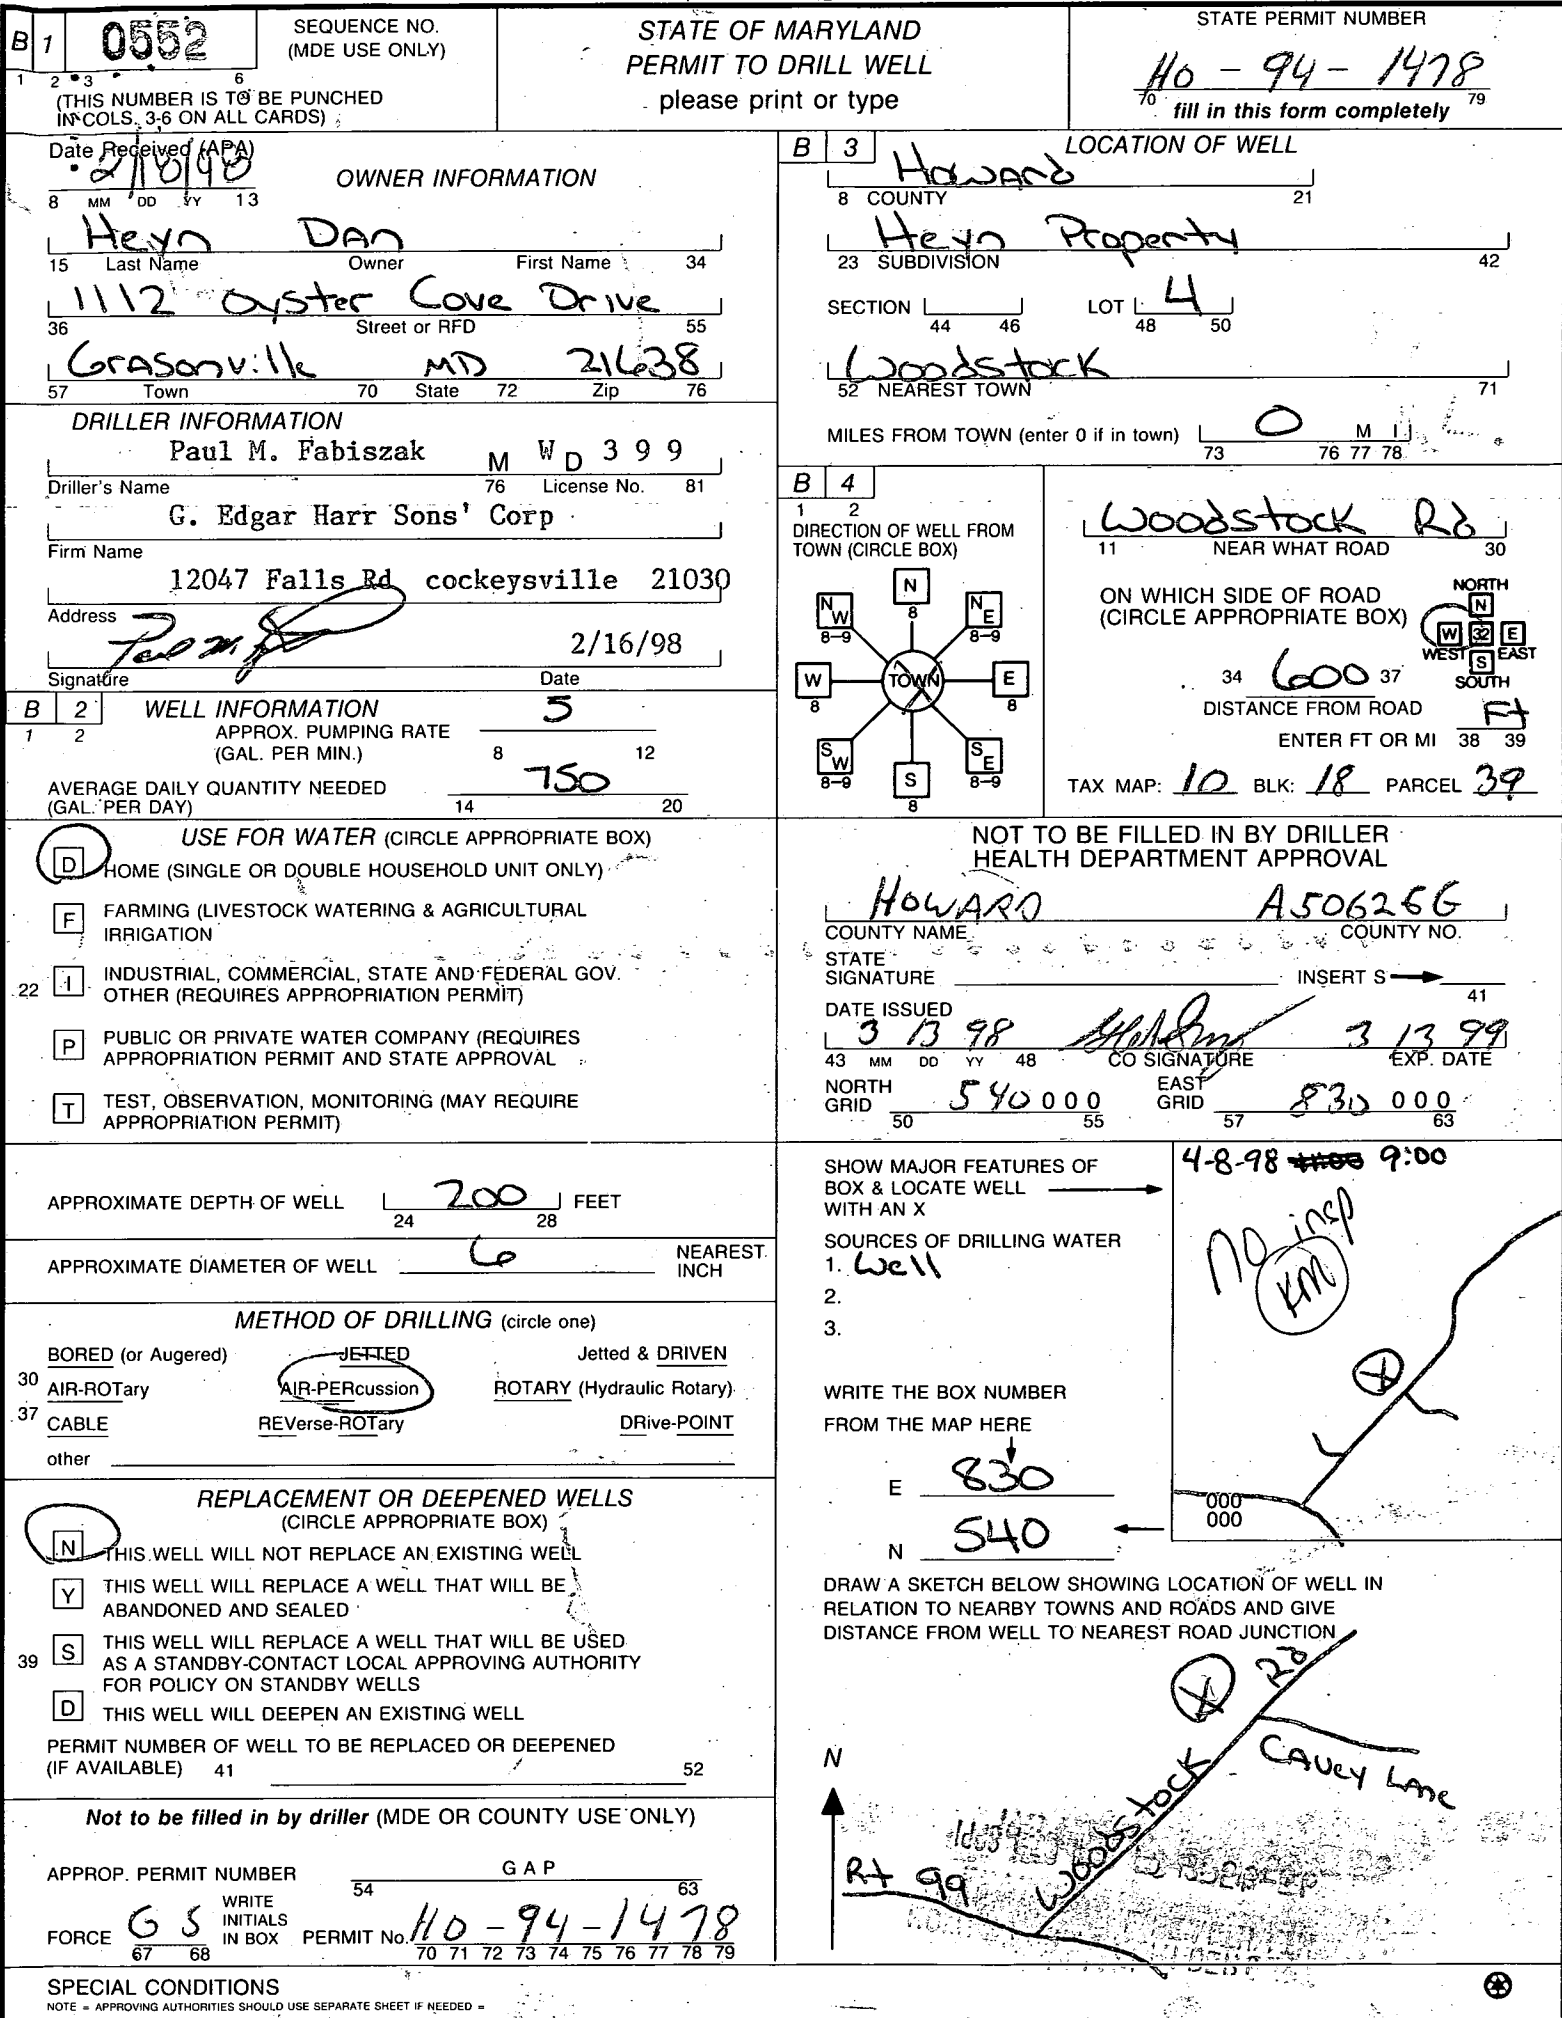 B 1 0552 SEQUENCE NO. (MDE USE ONLY)
1 2 3 6
(THIS NUMBER IS TO BE PUNCHED
IN COLS. 3-6 ON ALL CARDS)
STATE OF MARYLAND
PERMIT TO DRILL WELL
please print or type
STATE PERMIT NUMBER
HO - 94 - 1478
70 79
fill in this form completely
Date Received (APA)
8 MM DD YY 13
OWNER INFORMATION
Heyn Dan
15 Last Name Owner First Name 34
1112 Oyster Cove Drive
36 Street or RFD 55
Grasonville MD 21638
57 Town 70 State 72 Zip 76
DRILLER INFORMATION
Paul M. Fabiszak M W D 3 9 9
Driller's Name 76 License No. 81
G. Edgar Harr Sons' Corp
Firm Name
12047 Falls Rd cockeysville 21030
Address
2/16/98
Signature Date
B 2 WELL INFORMATION
1 2
APPROX. PUMPING RATE 5
(GAL. PER MIN.) 8 12
AVERAGE DAILY QUANTITY NEEDED 750
(GAL. PER DAY) 14 20
USE FOR WATER (CIRCLE APPROPRIATE BOX)
D HOME (SINGLE OR DOUBLE HOUSEHOLD UNIT ONLY)
F FARMING (LIVESTOCK WATERING & AGRICULTURAL
IRRIGATION
22 I INDUSTRIAL, COMMERCIAL, STATE AND FEDERAL GOV.
OTHER (REQUIRES APPROPRIATION PERMIT)
P PUBLIC OR PRIVATE WATER COMPANY (REQUIRES
APPROPRIATION PERMIT AND STATE APPROVAL
T TEST, OBSERVATION, MONITORING (MAY REQUIRE
APPROPRIATION PERMIT)
APPROXIMATE DEPTH OF WELL 200 FEET
24 28
APPROXIMATE DIAMETER OF WELL 6 NEAREST INCH
METHOD OF DRILLING (circle one)
BORED (or Augered) JETTED Jetted & DRIVEN
30 AIR-ROTary AIR-PERcussion ROTARY (Hydraulic Rotary)
37 CABLE REVerse-ROTary DRive-POINT
other
REPLACEMENT OR DEEPENED WELLS
(CIRCLE APPROPRIATE BOX)
N THIS WELL WILL NOT REPLACE AN EXISTING WELL
Y THIS WELL WILL REPLACE A WELL THAT WILL BE
ABANDONED AND SEALED
39 S THIS WELL WILL REPLACE A WELL THAT WILL BE USED
AS A STANDBY-CONTACT LOCAL APPROVING AUTHORITY
FOR POLICY ON STANDBY WELLS
D THIS WELL WILL DEEPEN AN EXISTING WELL
PERMIT NUMBER OF WELL TO BE REPLACED OR DEEPENED
(IF AVAILABLE) 41 52
Not to be filled in by driller (MDE OR COUNTY USE ONLY)
APPROP. PERMIT NUMBER G A P
54 63
FORCE G S WRITE INITIALS IN BOX PERMIT No. HO - 94 - 1478
67 68 70 71 72 73 74 75 76 77 78 79
SPECIAL CONDITIONS
NOTE = APPROVING AUTHORITIES SHOULD USE SEPARATE SHEET IF NEEDED =
B 3 LOCATION OF WELL
Howard
8 COUNTY 21
Heyn Property
23 SUBDIVISION 42
SECTION LOT 4
44 46 48 50
Woodstock
52 NEAREST TOWN 71
MILES FROM TOWN (enter 0 if in town) 0 M I
73 76 77 78
B 4
1 2
DIRECTION OF WELL FROM
TOWN (CIRCLE BOX)
N
8
NW NE
8-9 8-9
W TOWN E
8 8
SW SE
8-9 8-9
S
8
Woodstock Rd
11 NEAR WHAT ROAD 30
ON WHICH SIDE OF ROAD
(CIRCLE APPROPRIATE BOX)
NORTH
N
W 32 E
WEST EAST
S
SOUTH
34 600 37
DISTANCE FROM ROAD
Ft
ENTER FT OR MI 38 39
TAX MAP: 10 BLK: 18 PARCEL 39
NOT TO BE FILLED IN BY DRILLER
HEALTH DEPARTMENT APPROVAL
HOWARD A50626G
COUNTY NAME COUNTY NO.
STATE
SIGNATURE INSERT S
41
DATE ISSUED
3 13 98 3 13 99
43 MM DD YY 48 CO SIGNATURE EXP. DATE
NORTH GRID 540 000 EAST GRID 830 000
50 55 57 63
SHOW MAJOR FEATURES OF
BOX & LOCATE WELL
WITH AN X
SOURCES OF DRILLING WATER
1. Well
2.
3.
WRITE THE BOX NUMBER
FROM THE MAP HERE
E 830
N 540
4-8-98 9:00
no insp
KM
X
000
000
DRAW A SKETCH BELOW SHOWING LOCATION OF WELL IN
RELATION TO NEARBY TOWNS AND ROADS AND GIVE
DISTANCE FROM WELL TO NEAREST ROAD JUNCTION
N
X
Woodstock Rd
Cavey Lane
Rt 99